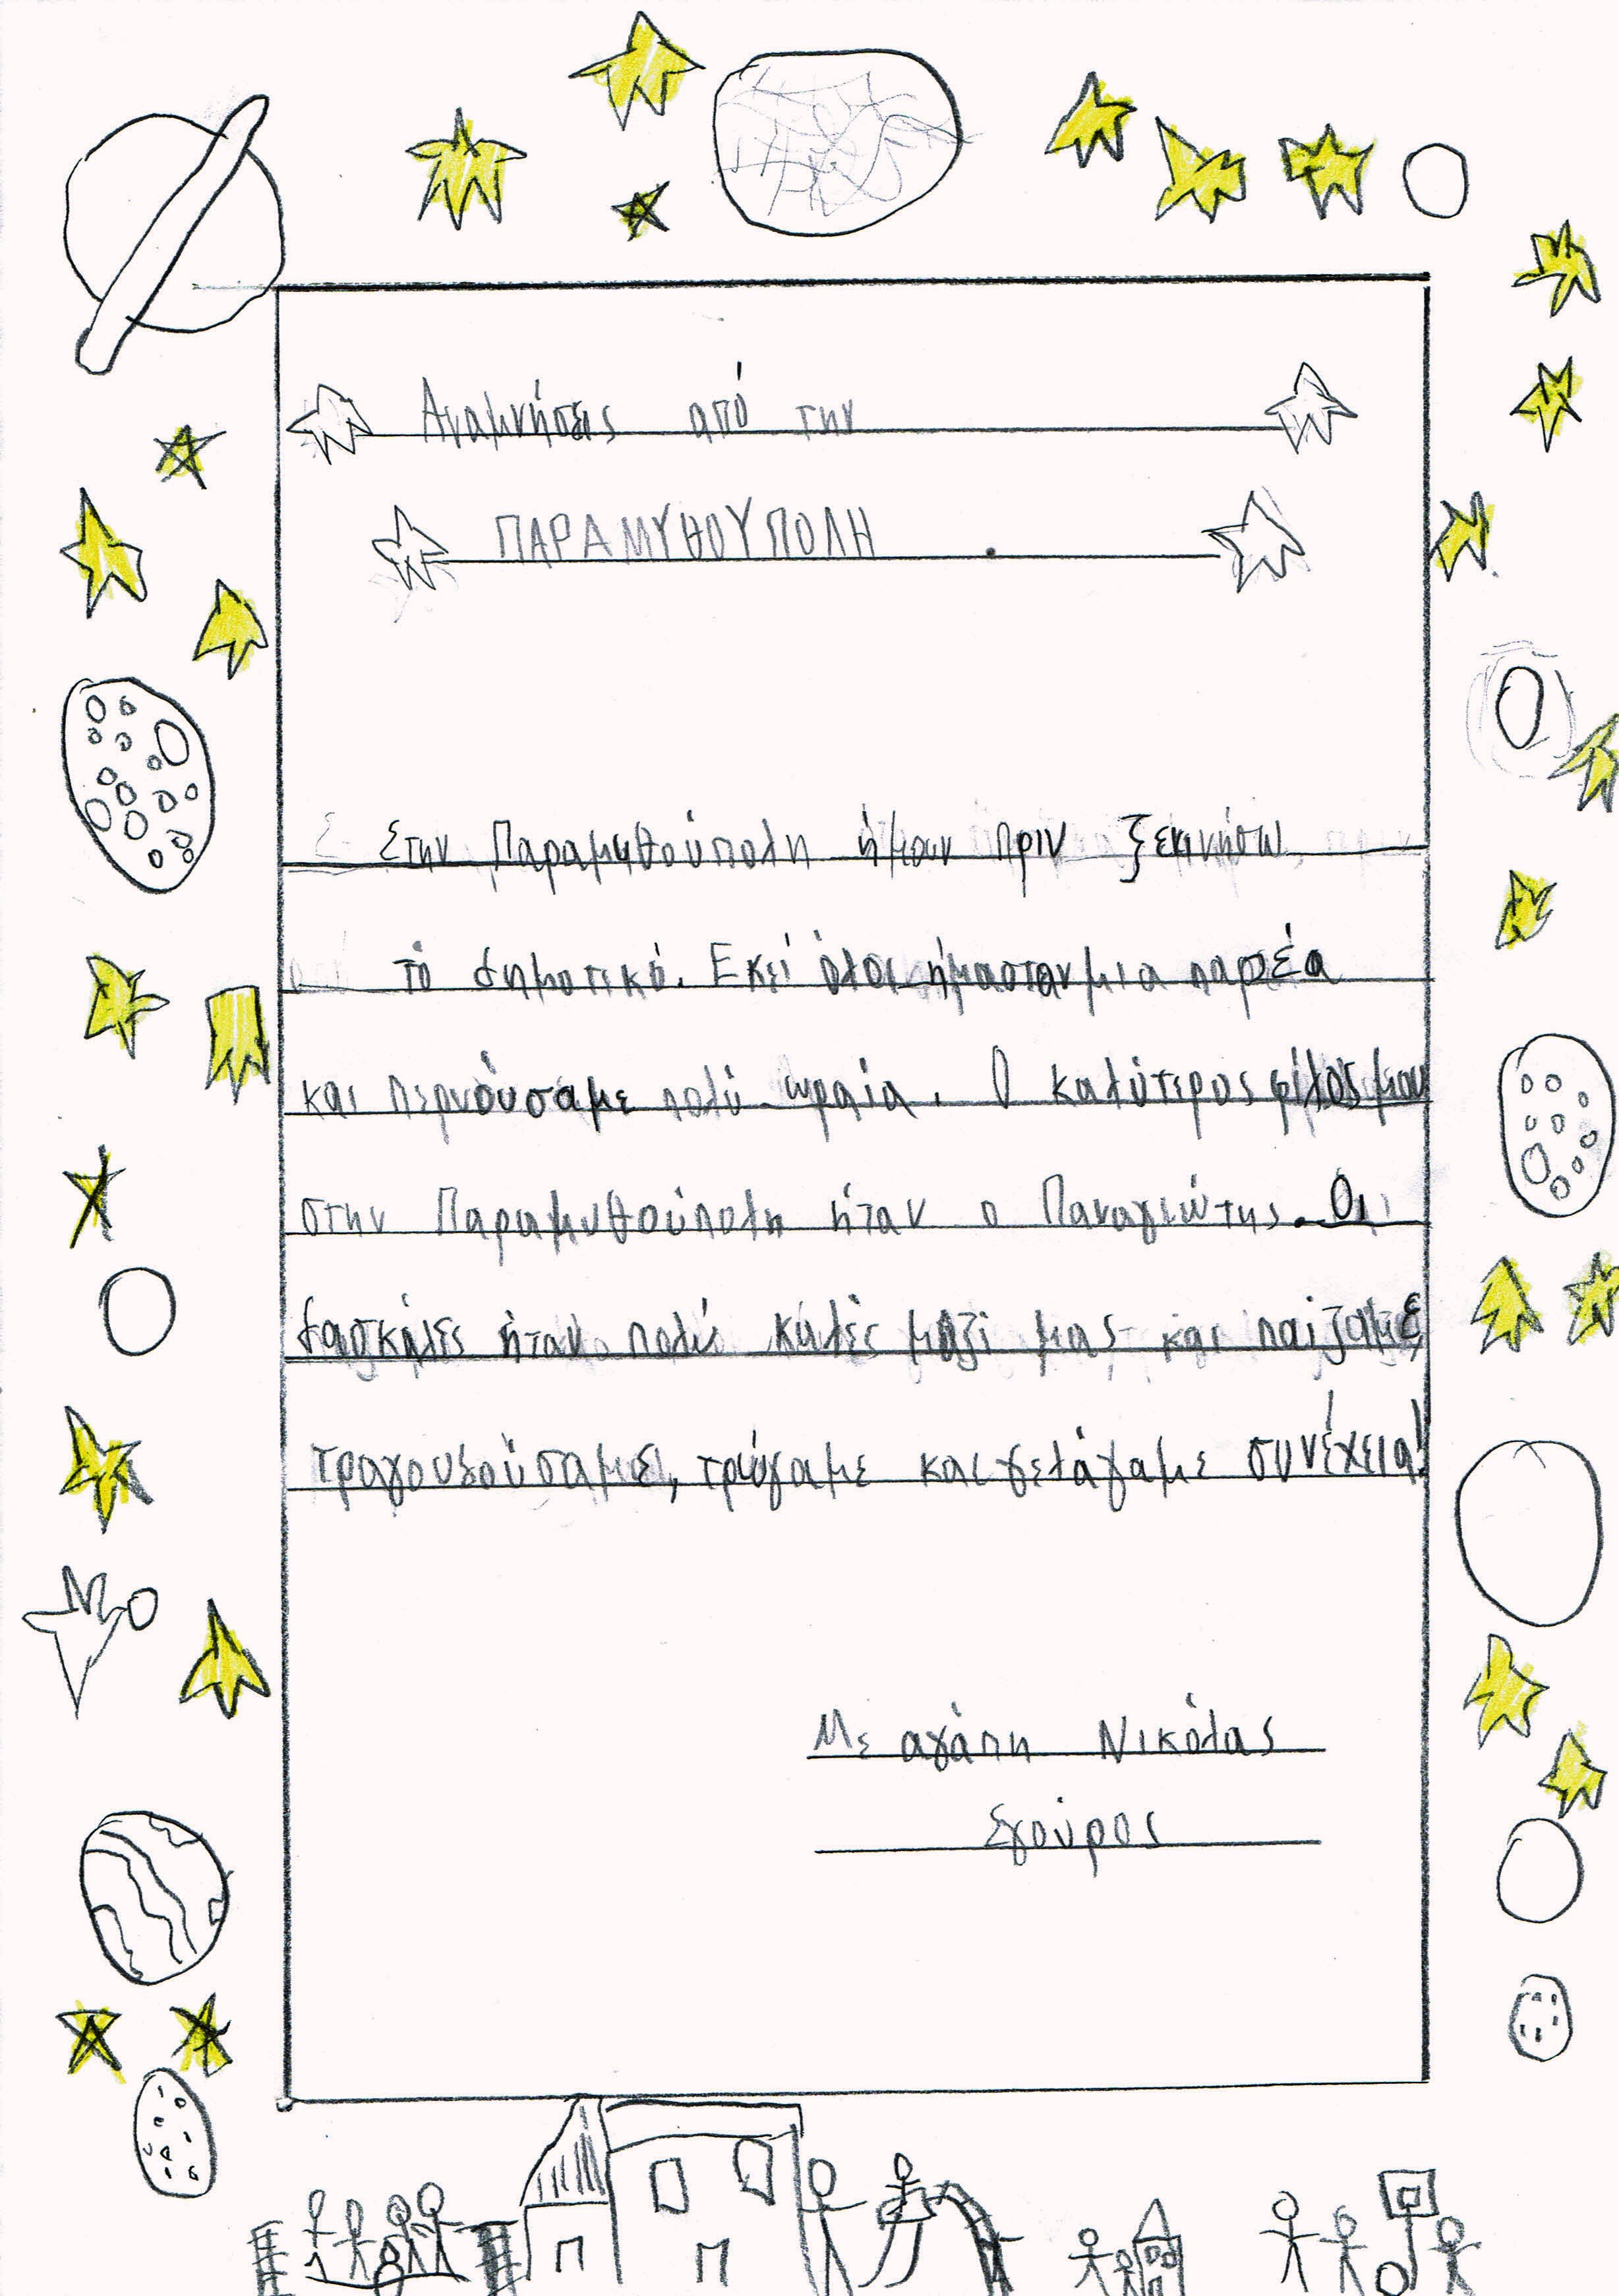 Αναμνήσεις από την
ΠΑΡΑΜΥΘΟΥΠΟΛΗ
Στην Παραμυθούπολη ήμουν πριν ξεκινήσω
το δημοτικό. Εκεί όλοι ήμασταν μια παρέα
και περνούσαμε πολύ ωραία. Ο καλύτερος φίλος μου
στην Παραμυθούπολη ήταν ο Παναγιώτης. Οι
δασκάλες ήταν πολύ καλές μαζί μας και παίζαμε,
τραγουδούσαμε, τρώγαμε και γελάγαμε συνέχεια!
Με αγάπη Νικόλας
Σγούρος